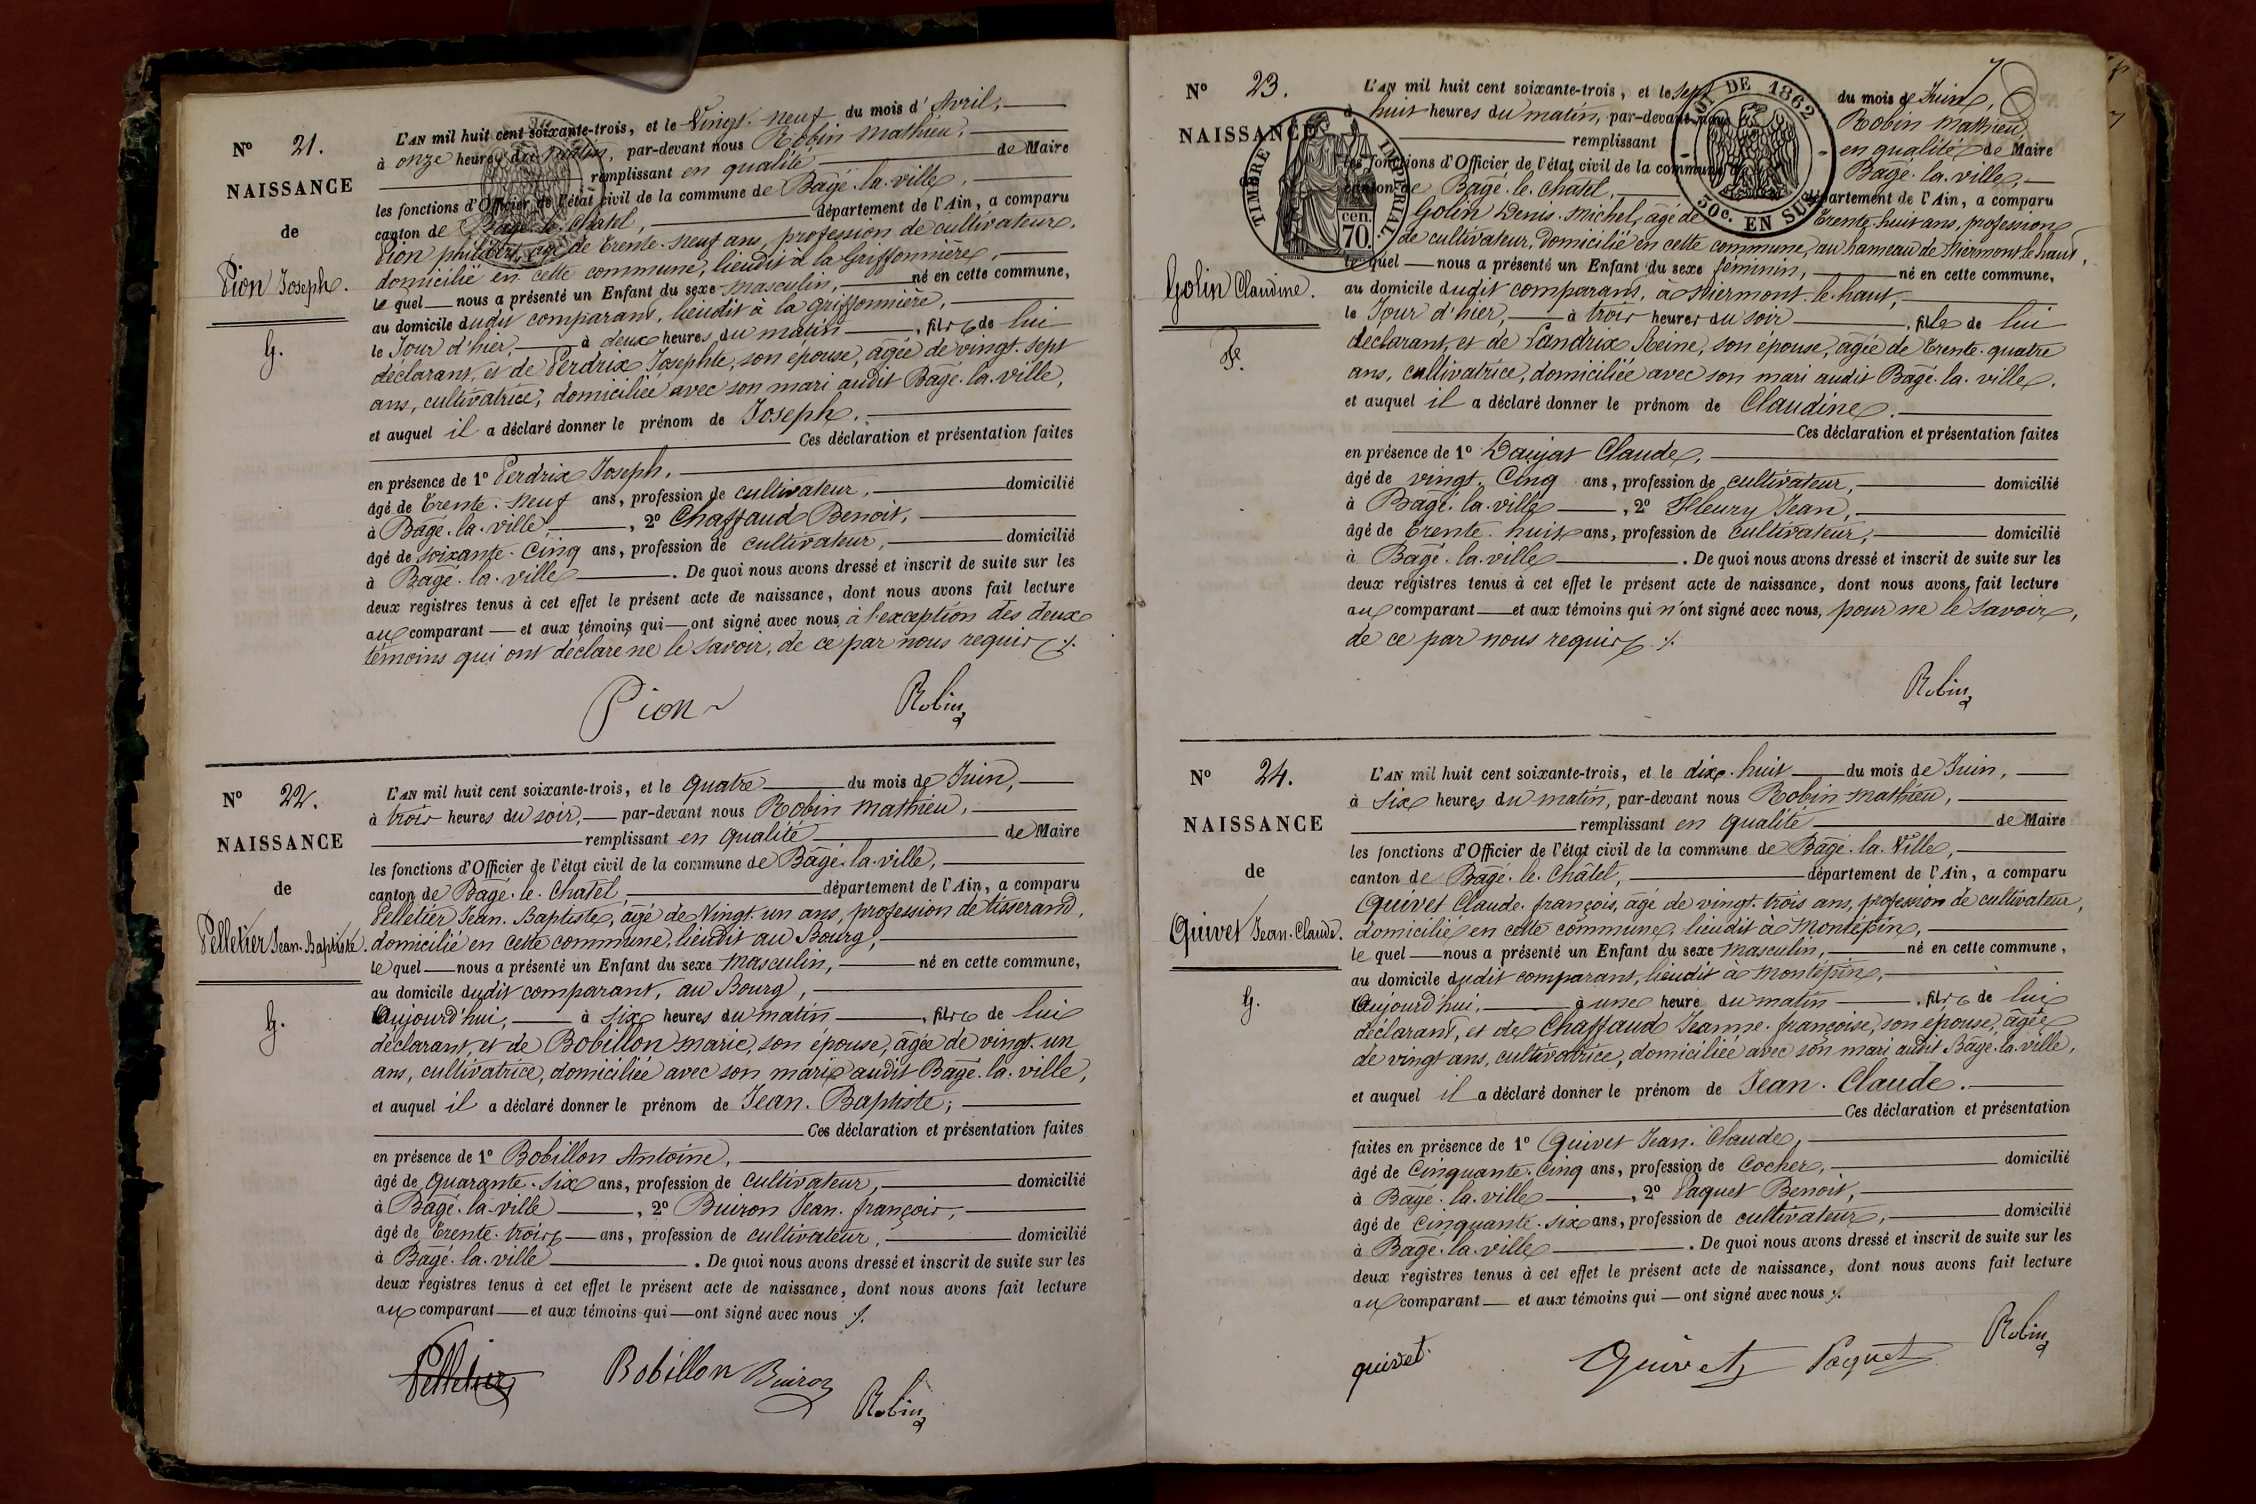 N° 21.
NAISSANCE
de
Pion Joseph.
G.
L'AN mil huit cent soixante-trois, et le Vingt-neuf du mois d'Avril,
à onze heures du matin, par-devant nous Robin Mathieu,
remplissant en qualité de Maire
les fonctions d'Officier de l'état civil de la commune de Bâgé-la-ville,
canton de Bâgé-le-Châtel, département de l'Ain, a comparu
Pion philibert, âgé de trente-neuf ans, profession de cultivateur,
domicilié en cette commune, lieudit à la Griffonnière,
le quel nous a présenté un Enfant du sexe masculin, né en cette commune,
au domicile dudit comparant, lieudit à la griffonnière,
le Jour d'hier, à deux heures du matin, fils de lui
déclarant, et de Perdrix Josephte, son épouse, âgée de vingt-sept
ans, cultivatrice, domiciliée avec son mari audit Bâgé-la-ville,
et auquel il a déclaré donner le prénom de Joseph.
Ces déclaration et présentation faites
en présence de 1° Perdrix Joseph,
âgé de trente-neuf ans, profession de cultivateur, domicilié
à Bâgé-la-ville, 2° Chaffaud Benoit,
âgé de soixante-cinq ans, profession de cultivateur, domicilié
à Bagé-la-ville. De quoi nous avons dressé et inscrit de suite sur les
deux registres tenus à cet effet le présent acte de naissance, dont nous avons fait lecture
au comparant et aux témoins qui ont signé avec nous à l'exception des deux
témoins qui ont déclaré ne le savoir, de ce par nous requis ./.
Pion Robin
N° 22.
NAISSANCE
de
Pelletier Jean-Baptiste.
G.
L'AN mil huit cent soixante-trois, et le quatre du mois de Juin,
à trois heures du soir, par-devant nous Robin Mathieu,
remplissant en qualité de Maire
les fonctions d'Officier de l'état civil de la commune de Bâgé-la-ville,
canton de Bagé-le-Chatel, département de l'Ain, a comparu
Pelletier Jean-Baptiste, âgé de Vingt-un ans, profession de tisserand,
domicilié en cette commune, lieudit au Bourg,
le quel nous a présenté un Enfant du sexe masculin, né en cette commune,
au domicile dudit comparant, au Bourg,
Aujourd'hui, à six heures du matin, fils de lui
déclarant, et de Bobillon marie, son épouse, âgée de vingt-un
ans, cultivatrice, domiciliée avec son mari audit Bagé-la-ville,
et auquel il a déclaré donner le prénom de Jean-Baptiste;
Ces déclaration et présentation faites
en présence de 1° Bobillon Antoine,
âgé de quarante-six ans, profession de cultivateur, domicilié
à Bâgé-la-ville, 2° Buiron Jean-françois,
âgé de trente-trois ans, profession de cultivateur, domicilié
à Bagé-la-ville. De quoi nous avons dressé et inscrit de suite sur les
deux registres tenus à cet effet le présent acte de naissance, dont nous avons fait lecture
au comparant et aux témoins qui ont signé avec nous ./.
Pelletier Bobillon Buiron
Robin
7
N° 23.
NAISSANCE
TIMBRE IMPÉRIAL
cen. 70.
LOI DE 1862
50c. EN SUS
Golin Claudine.
F.
L'AN mil huit cent soixante-trois, et le Sept du mois de Juin,
à huit heures du matin, par-devant nous Robin Mathieu,
remplissant en qualité de Maire
les fonctions d'Officier de l'état civil de la commune de Bagé-la-ville,
canton de Bagé-le-chatel, département de l'Ain, a comparu
Golin Denis-Michel, âgé de trente-huit ans, profession
de cultivateur, domicilié en cette commune, au hameau de Miermont-le-haut,
le quel nous a présenté un Enfant du sexe féminin, né en cette commune,
au domicile dudit comparant, à Miermont-le-haut,
le Jour d'hier, à trois heures du soir, fille de lui
déclarant, et de Landrix Reine, son épouse, âgée de trente-quatre
ans, cultivatrice, domiciliée avec son mari audit Bagé-la-ville,
et auquel il a déclaré donner le prénom de Claudine.
Ces déclaration et présentation faites
en présence de 1° Daujat Claude,
âgé de vingt-Cinq ans, profession de cultivateur, domicilié
à Bâgé-la-ville, 2° Fleury Jean,
âgé de trente-huit ans, profession de cultivateur, domicilié
à Bagé-la-ville. De quoi nous avons dressé et inscrit de suite sur les
deux registres tenus à cet effet le présent acte de naissance, dont nous avons fait lecture
au comparant et aux témoins qui n'ont signé avec nous, pour ne le savoir,
de ce par nous requis ./.
Robin
N° 24.
NAISSANCE
de
Quivet Jean-Claude.
G.
L'AN mil huit cent soixante-trois, et le dix-huit du mois de Juin,
à Six heures du matin, par-devant nous Robin Mathieu,
remplissant en qualité de Maire
les fonctions d'Officier de l'état civil de la commune de Bâgé-la-Ville,
canton de Bâgé-le-Châtel, département de l'Ain, a comparu
Quivet Claude-françois, âgé de vingt-trois ans, profession de cultivateur,
domicilié en cette commune, lieudit à Montépin,
le quel nous a présenté un Enfant du sexe masculin, né en cette commune,
au domicile dudit comparant, lieudit à Montépin,
Aujourd'hui, à une heure du matin, fils de lui
déclarant, et de Chaffaud Jeanne-françoise, son épouse, âgée
de vingt ans, cultivatrice, domiciliée avec son mari audit Bagé-la-ville,
et auquel il a déclaré donner le prénom de Jean-Claude.
Ces déclaration et présentation
faites en présence de 1° Quivet Jean-Claude,
âgé de Cinquante-Cinq ans, profession de Cocher, domicilié
à Bagé-la-ville, 2° Paquet Benoit,
âgé de Cinquante-six ans, profession de cultivateur, domicilié
à Bagé-la-ville. De quoi nous avons dressé et inscrit de suite sur les
deux registres tenus à cet effet le présent acte de naissance, dont nous avons fait lecture
au comparant et aux témoins qui ont signé avec nous ./.
quivet Quivet Paquet Robin